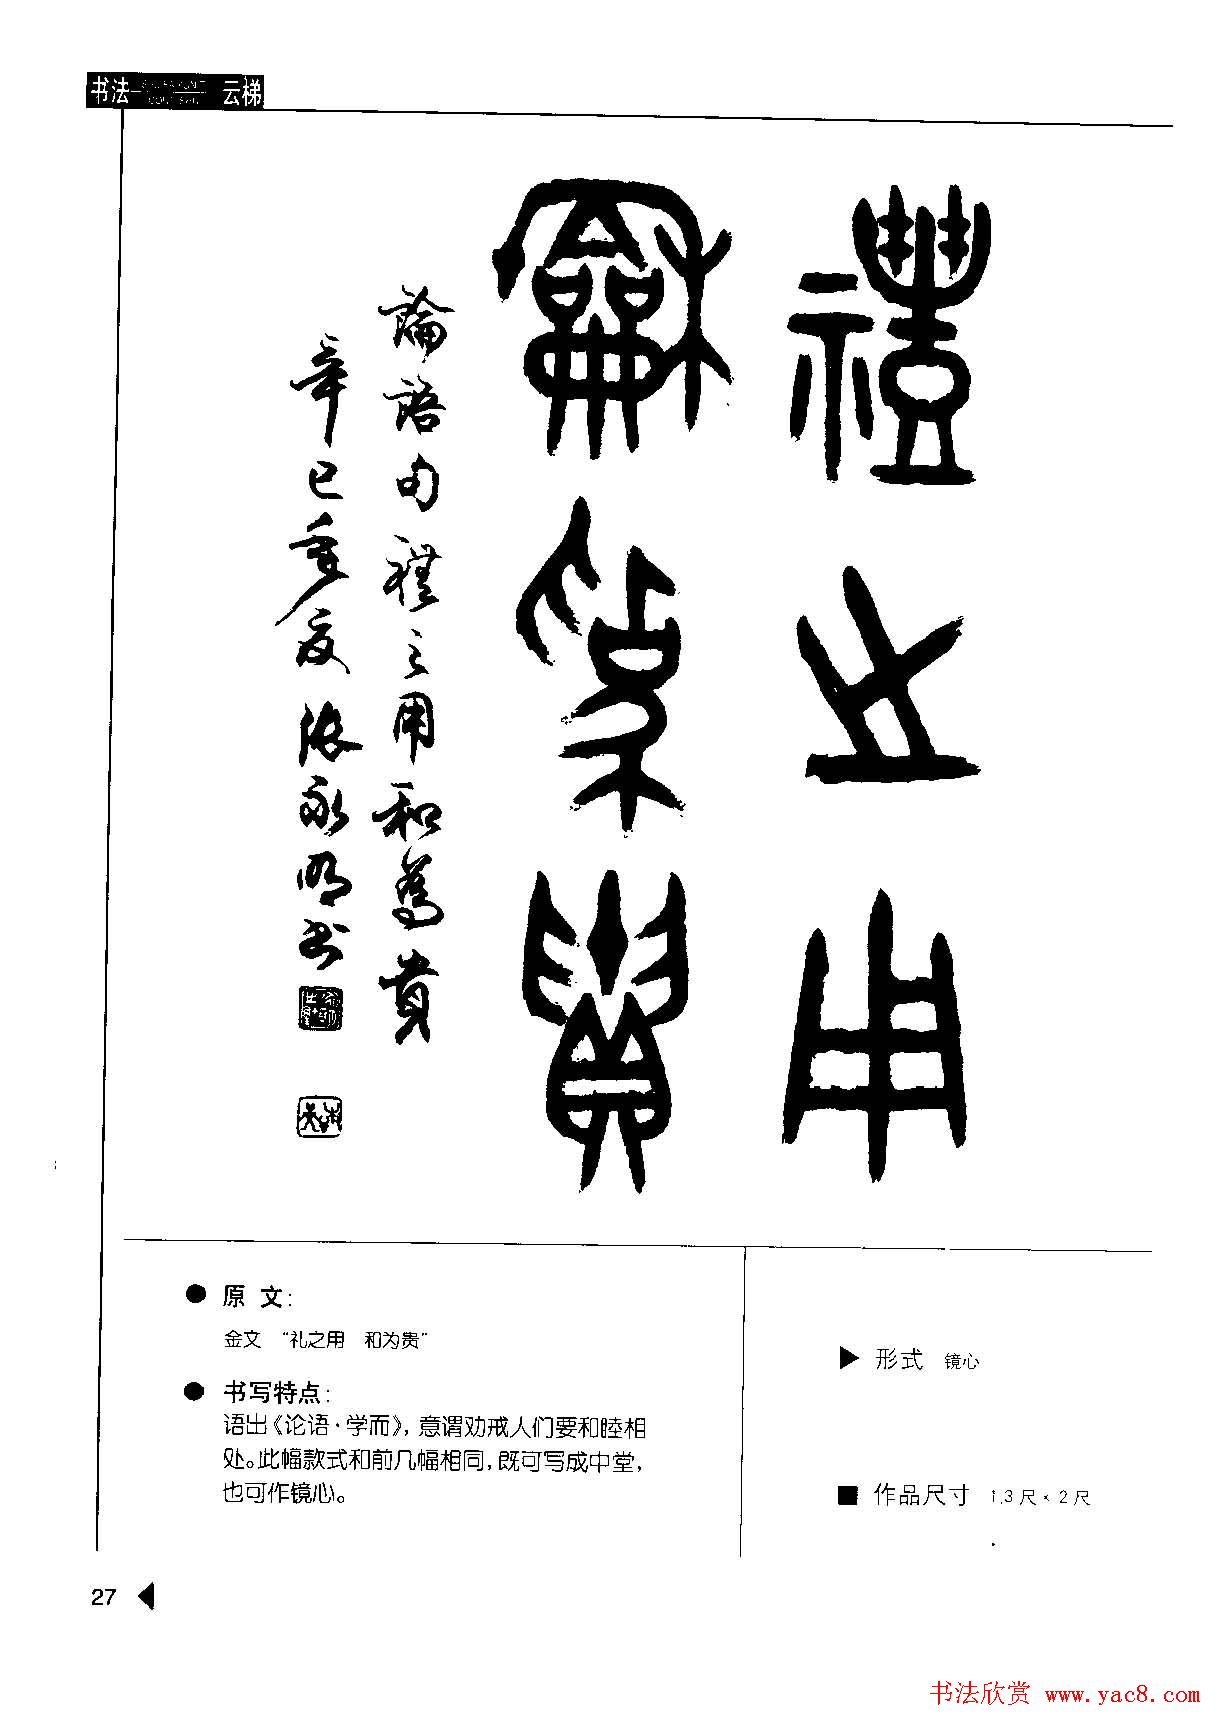 书法 云梯
禮之用
龢為貴
論語句禮之用和為貴
辛巳重夏張永明书
● 原 文：
金文 “礼之用 和为贵”
● 书写特点：
语出《论语·学而》，意谓劝戒人们要和睦相
处。此幅款式和前几幅相同，既可写成中堂，
也可作镜心。
▶ 形式 镜心
■ 作品尺寸 1.3尺×2尺
27 ◀
书法欣赏 www.yac8.com